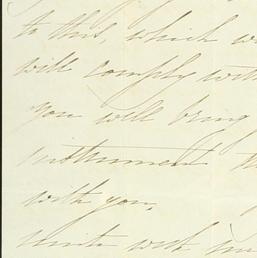 to this, which w
will comply with
you will bring
instrument th
with you,
Unite with in